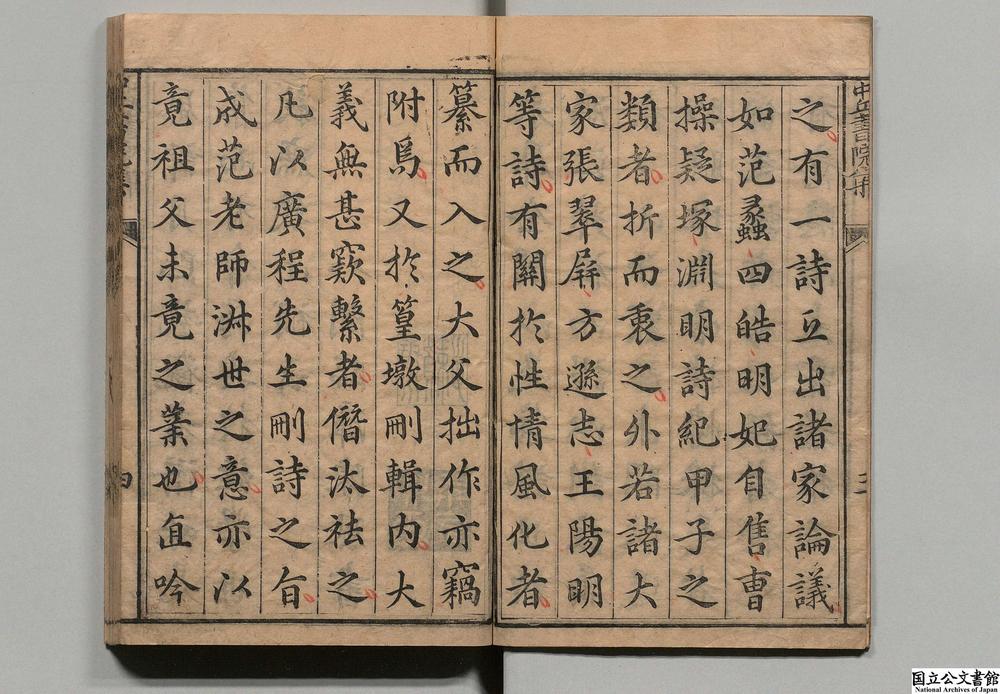 之有一詩立出諸家論議
如范蠡四皓明妃自售曹
操疑塚淵明詩紀甲子之
類者折而衷之外若諸大
家張翠屏方遜志王陽明
等詩有關於性情風化者
三
纂而入之大父拙作亦竊
附焉又於篁墩刪輯内大
義無甚窾繫者僭汰祛之
凡以廣程先生刪詩之旨
成范老師淑世之意亦以
竟祖父未竟之業也直吟
四
国立公文書館
National Archives of Japan